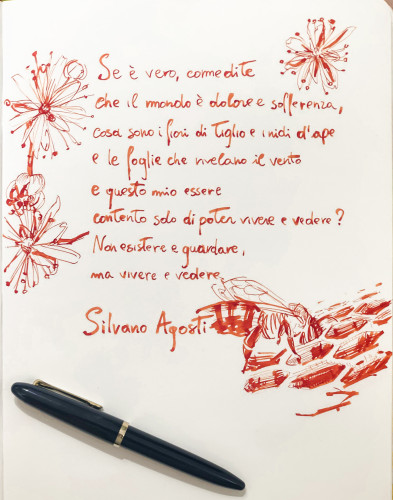 Se è vero, come dite
che il mondo è dolore e sofferenza,
cosa sono i fiori di tiglio e i nidi d'ape
e le foglie che rivelano il vento
e questo mio essere
contento solo di poter vivere e vedere?
Non esistere e guardare,
ma vivere e vedere
Silvano Agosti